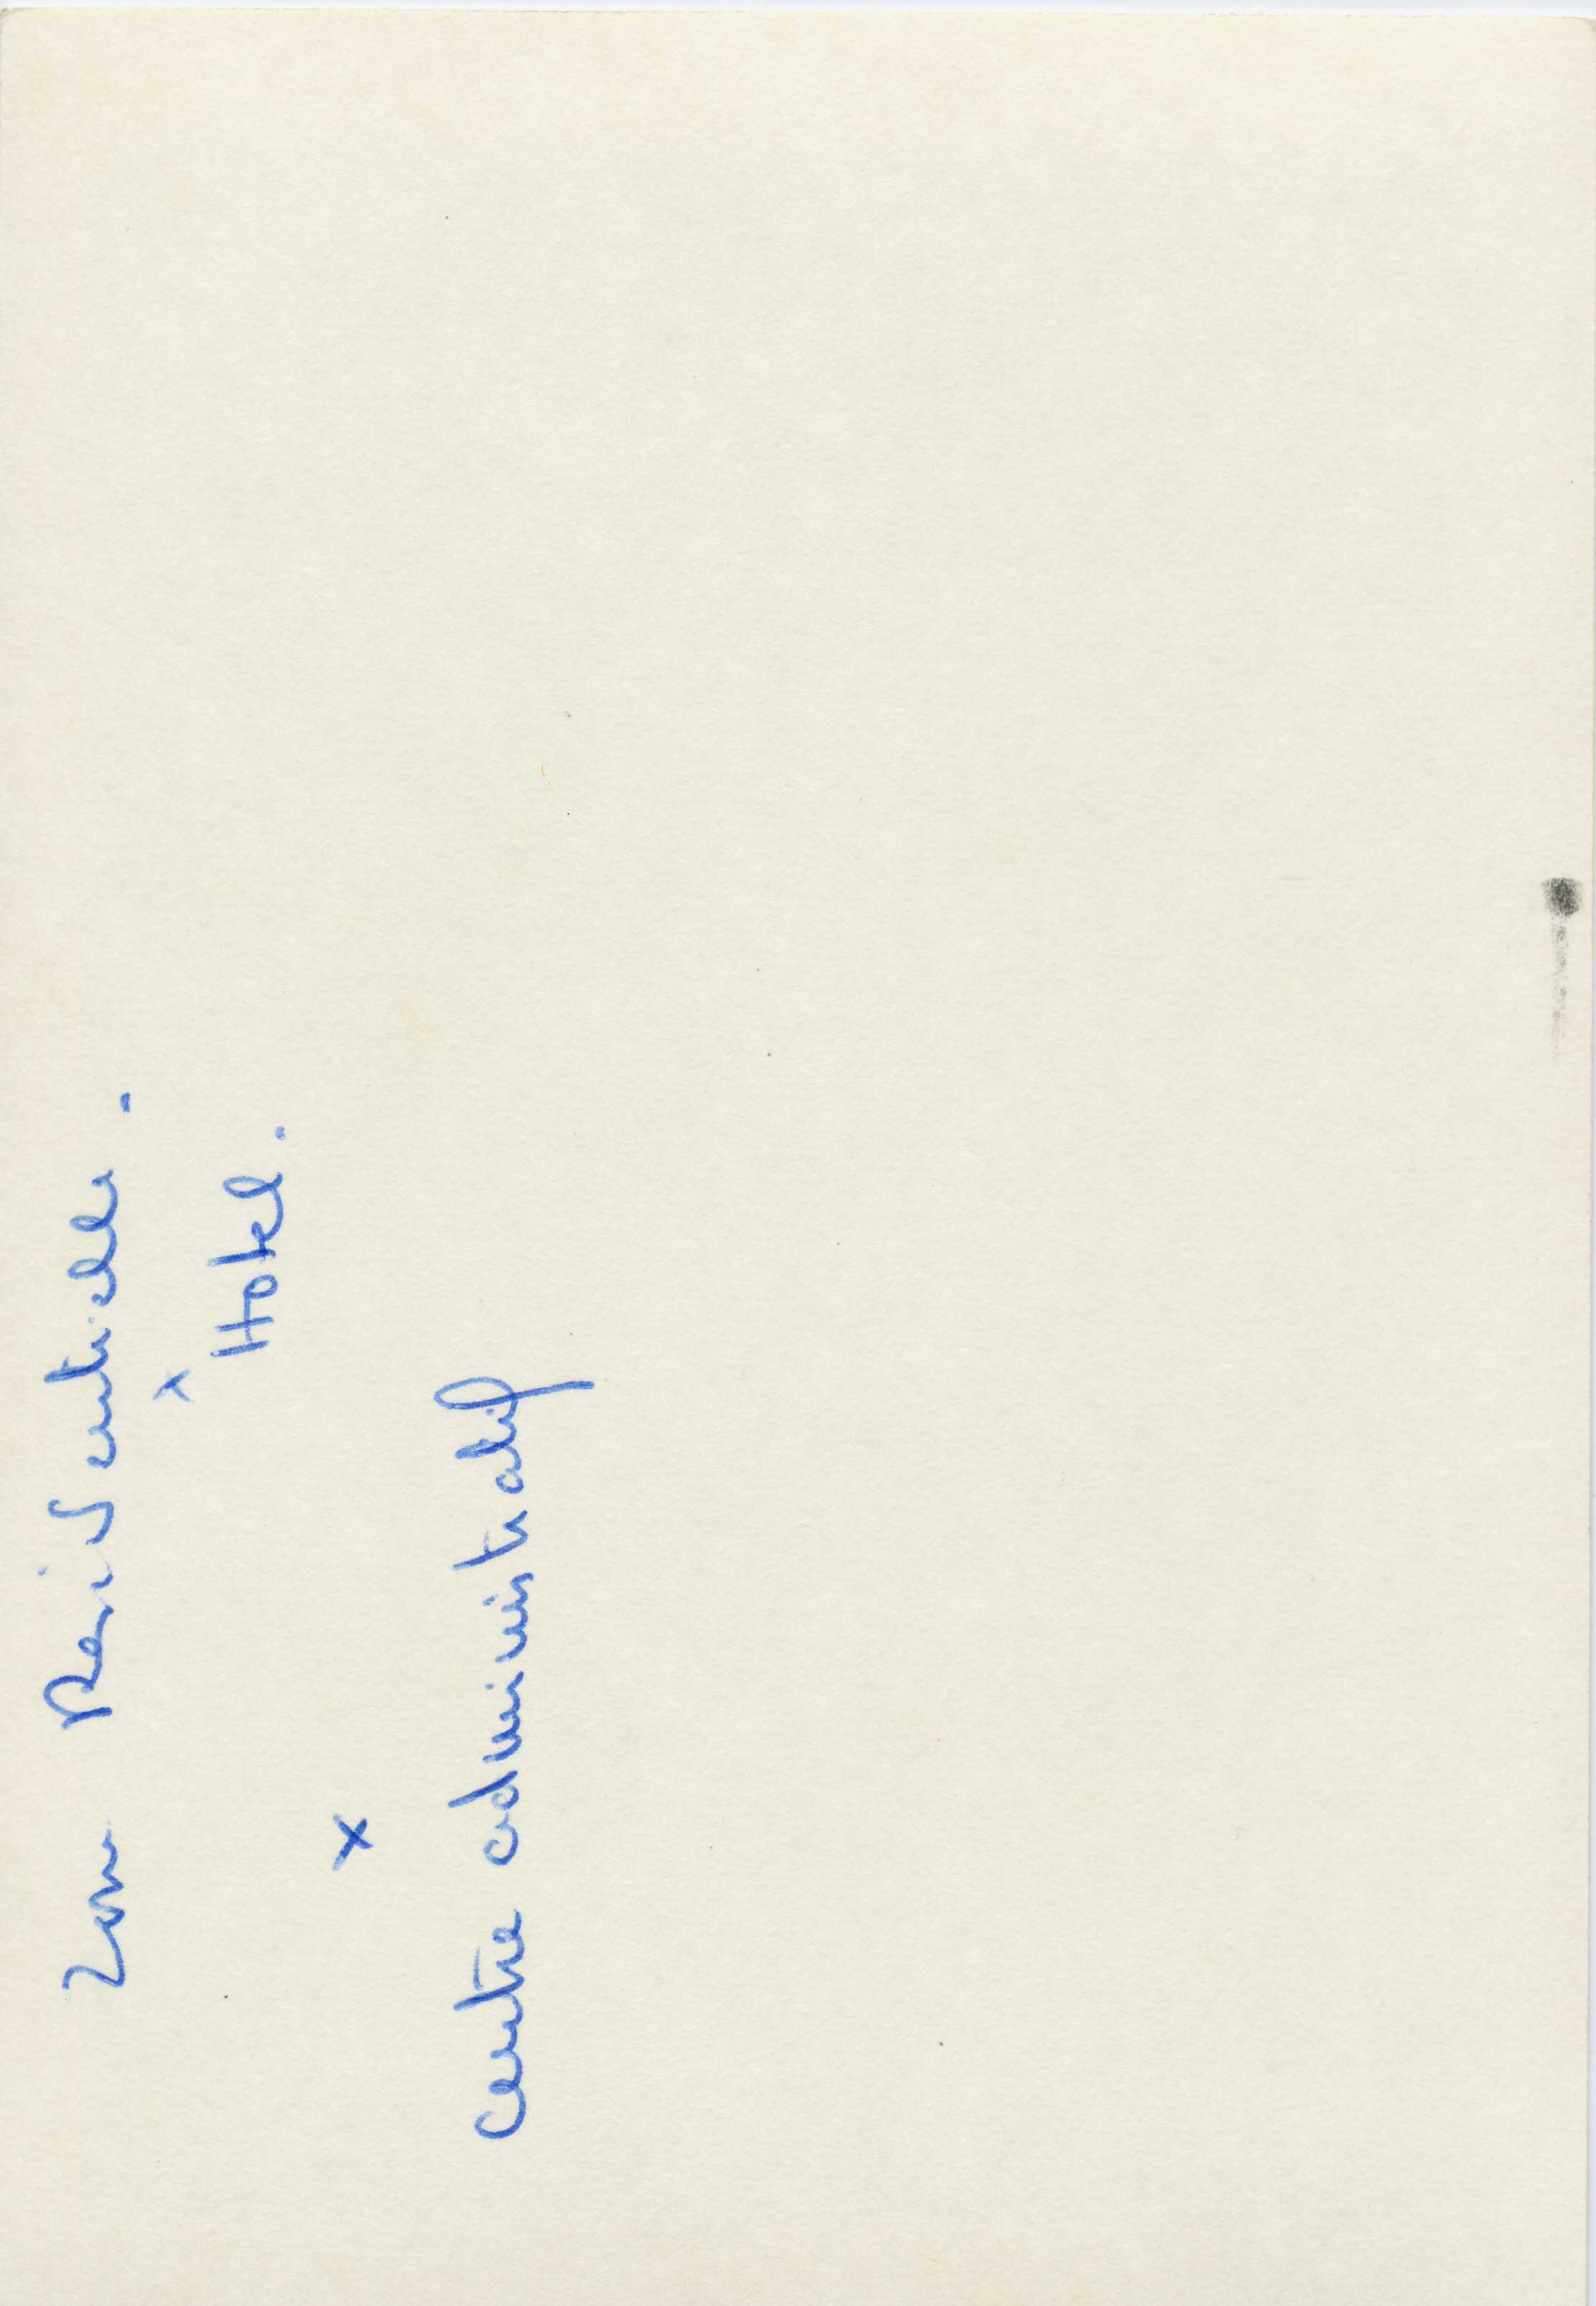 Zone Residentielle.
x
Hotel.
x
Centre administratif